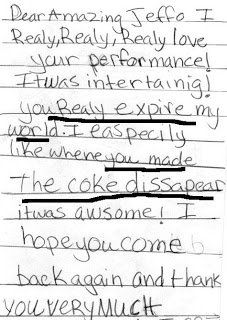 Dear Amazing Jeffo I
Realy, Realy, Realy love
your performance!
It was intertainig!
you Realy expire my
world. I easpecily
like where you made
The coke dissapear
it was awsome! I
hope you come
back again and thank
you very much